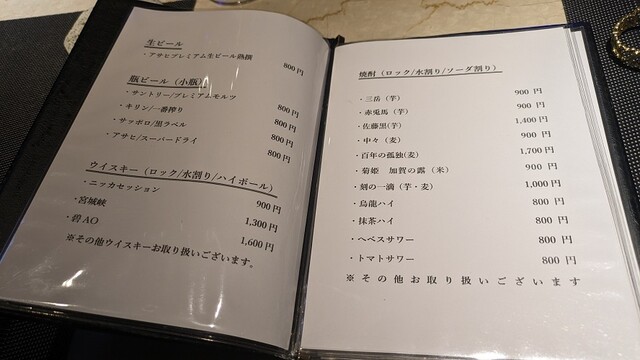 生ビール
・アサヒプレミアム生ビール熟撰 800円
瓶ビール（小瓶）
・サントリー/プレミアムモルツ 800円
・キリン/一番搾り 800円
・サッポロ/黒ラベル 800円
・アサヒ/スーパードライ 800円
ウイスキー（ロック/水割り/ハイボール）
・ニッカセッション 900円
・宮城峡 1,300円
・碧AO 1,600円
※その他ウイスキーお取り扱いございます。
焼酎（ロック/水割り/ソーダ割り）
・三岳（芋） 900円
・赤兎馬（芋） 900円
・佐藤黒(芋) 1,400円
・中々（麦） 900円
・百年の孤独(麦) 1,700円
・菊姫　加賀の露（米） 900円
・刻の一滴（芋・麦） 1,000円
・烏龍ハイ 800円
・抹茶ハイ 800円
・ヘベスサワー 800円
・トマトサワー 800円
※その他お取り扱いございます